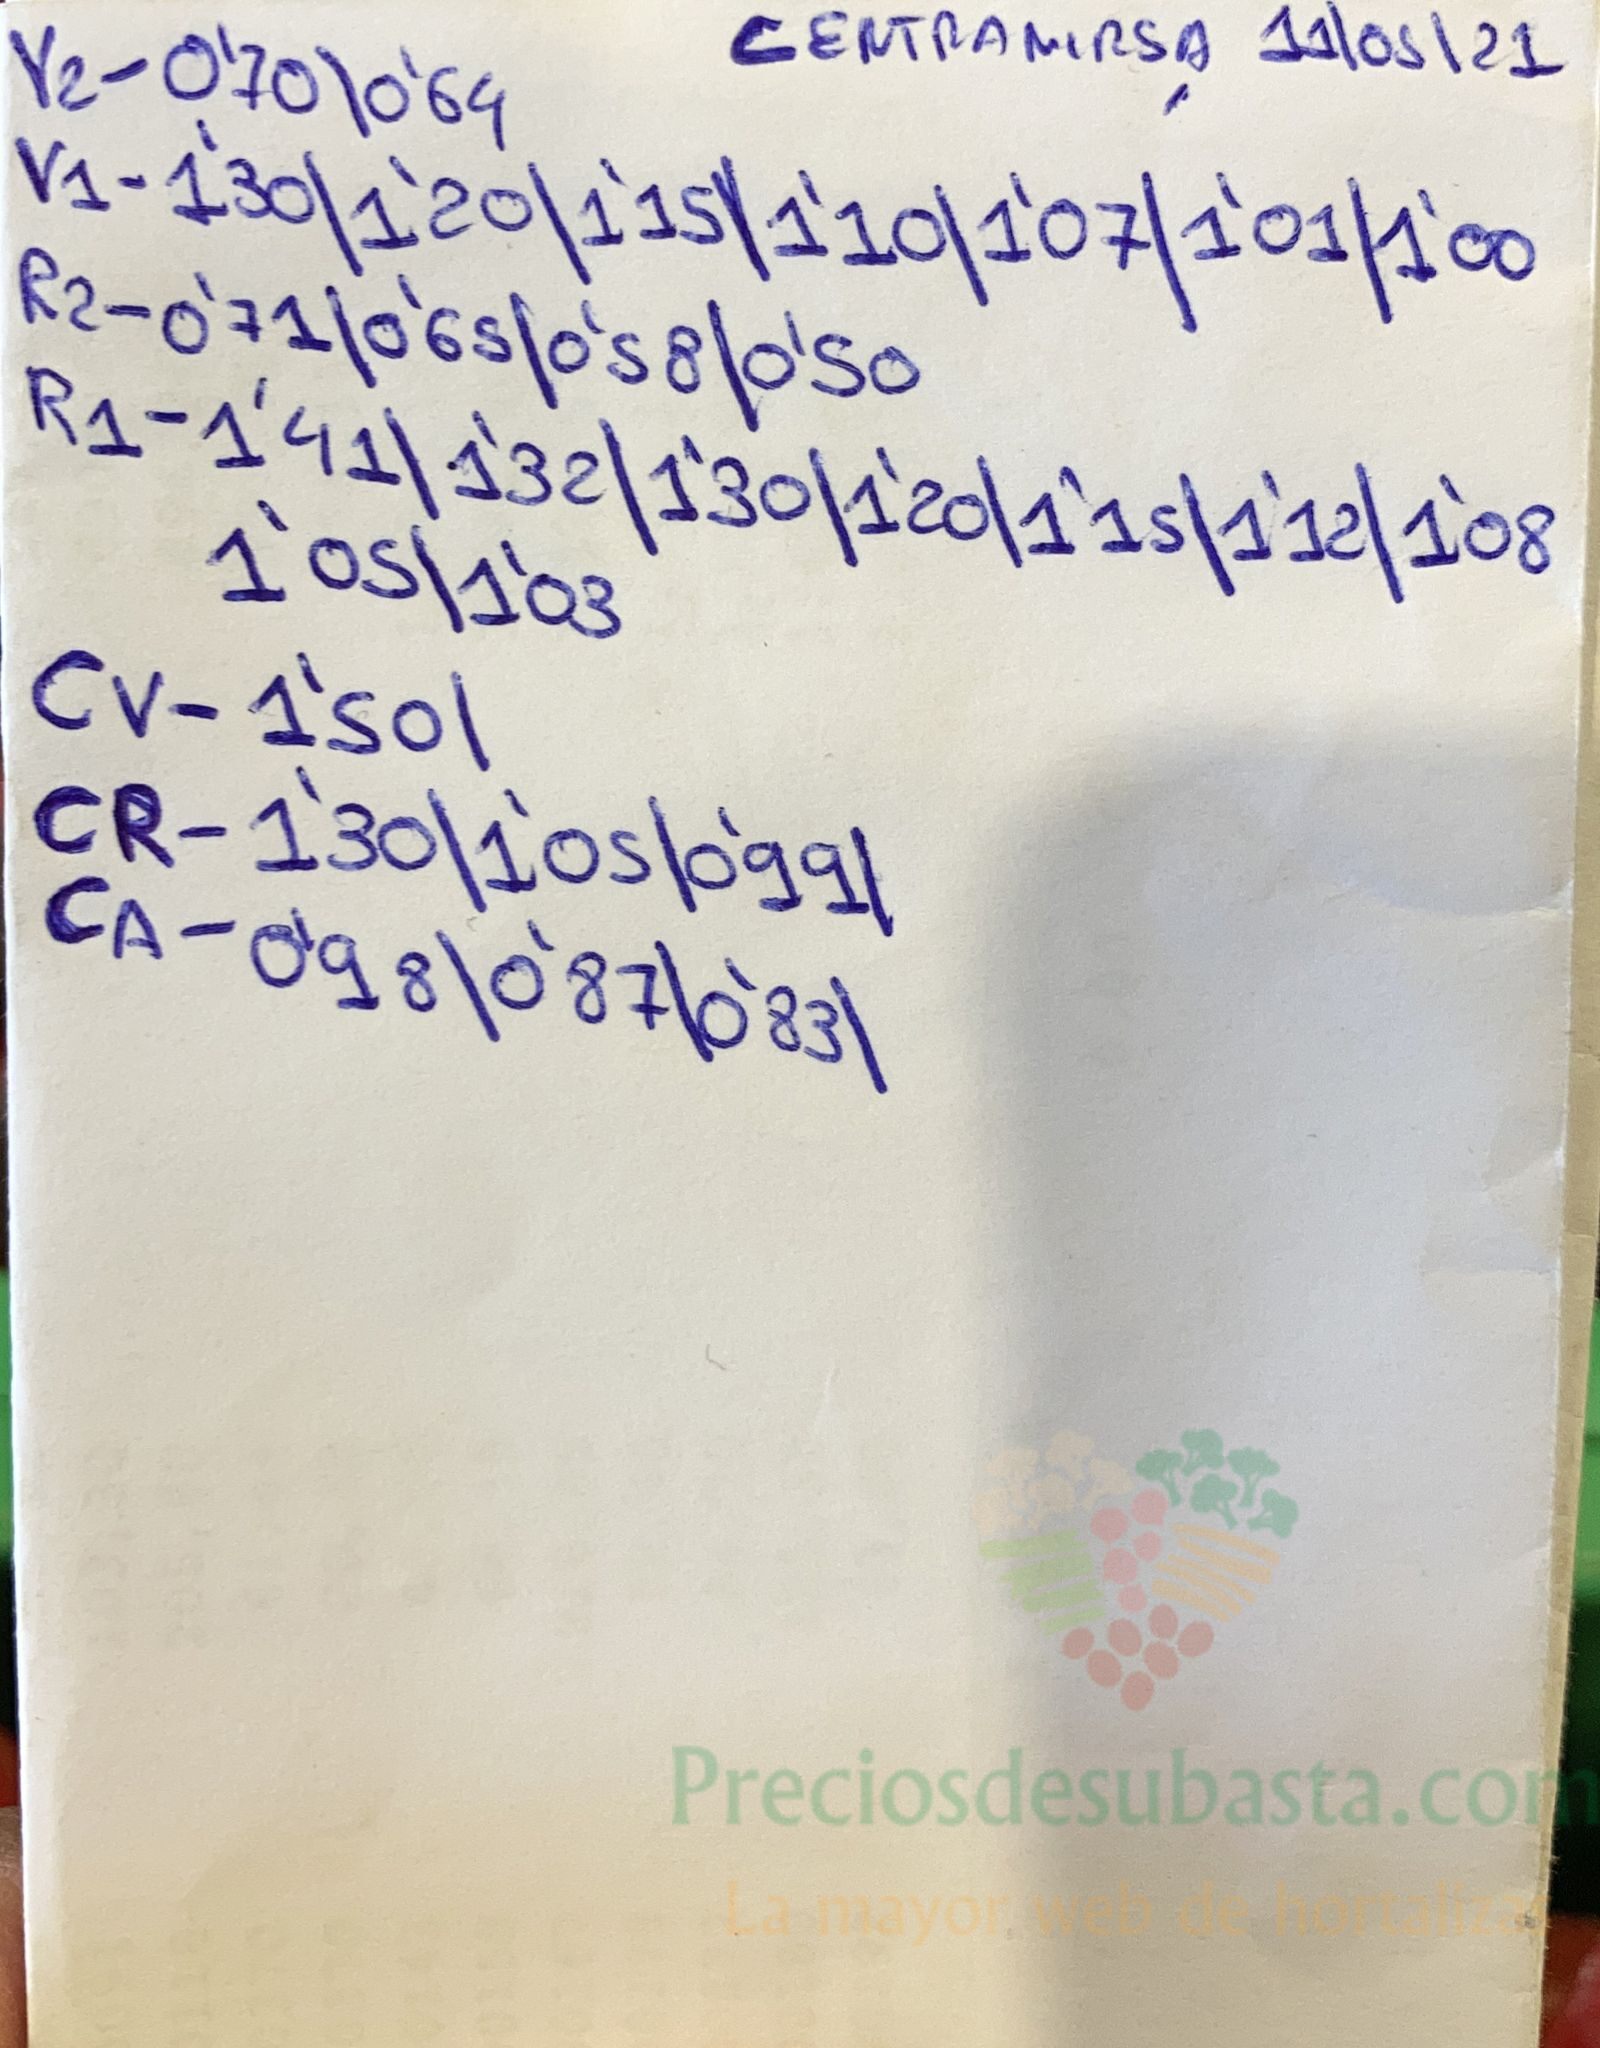 CENTRAMIRSA 11/05/21
V2-0'70/0'64
V1-1'30/1'20/1'15/1'10/1'07/1'01/1'00
R2-0'71/0'65/0'58/0'50
R1-1'41/1'32/1'30/1'20/1'15/1'12/1'08
1'05/1'03
CV-1'50/
CR-1'30/1'05/0'99/
CA-0'98/0'87/0'83/
Preciosdesubasta.com
La mayor web de hortalizas